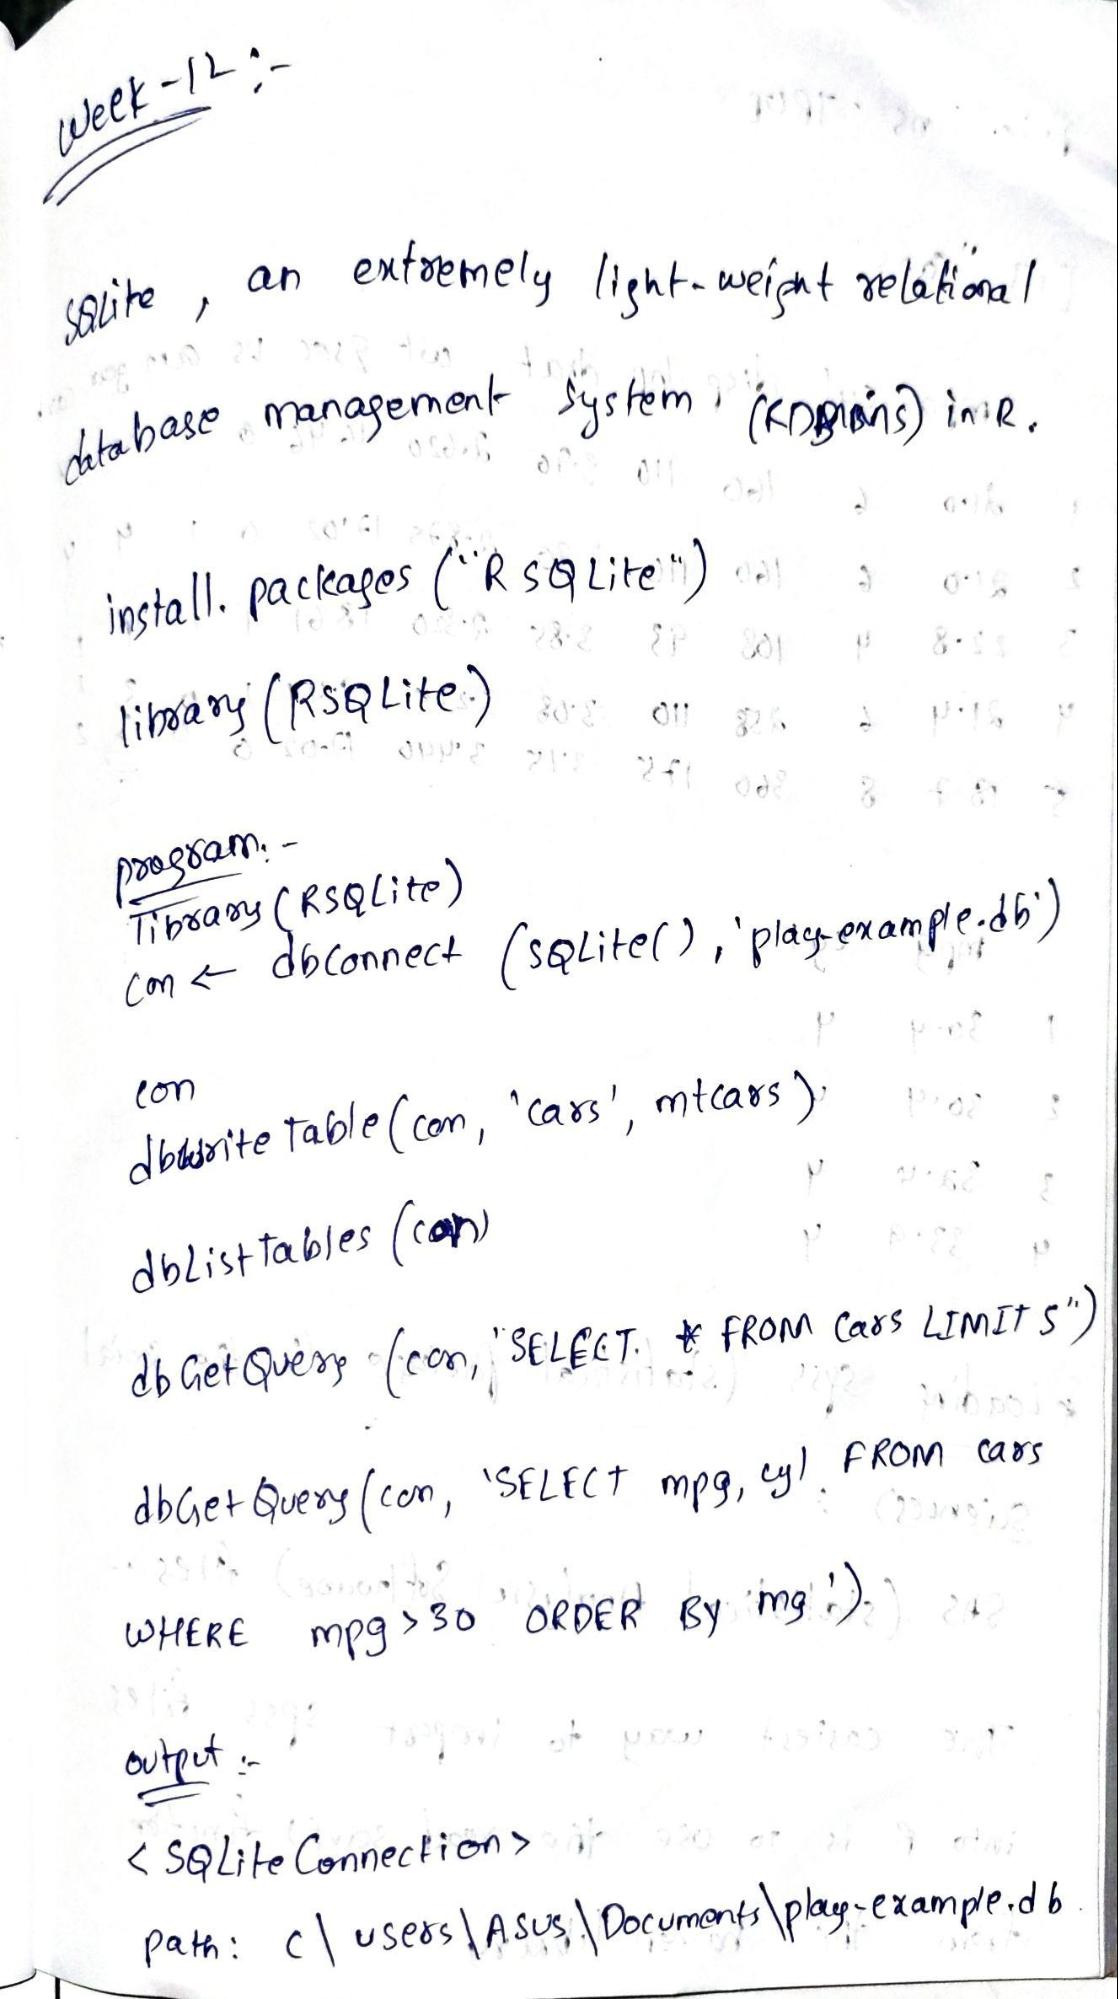 Week-12 :-
SQLite , an extremely light-weight relational
database management system in R.
install. packages ("RSQLite")
library (RSQLite)
program:-
library (RSQLite)
con ← dbConnect (SQLite() , 'play-example.db')
con
dbwrite Table (con, 'cars', mtcars)
dbListTables (con)
db Get Query (con, "SELECT. * FROM Cars LIMIT 5")
dbGet Query (con, 'SELECT mpg, cyl FROM cars
WHERE mpg > 30 ORDER By mg').
output :-
< SQLite Connection >
path: c\ users\ASUS\Documents\play-example.db